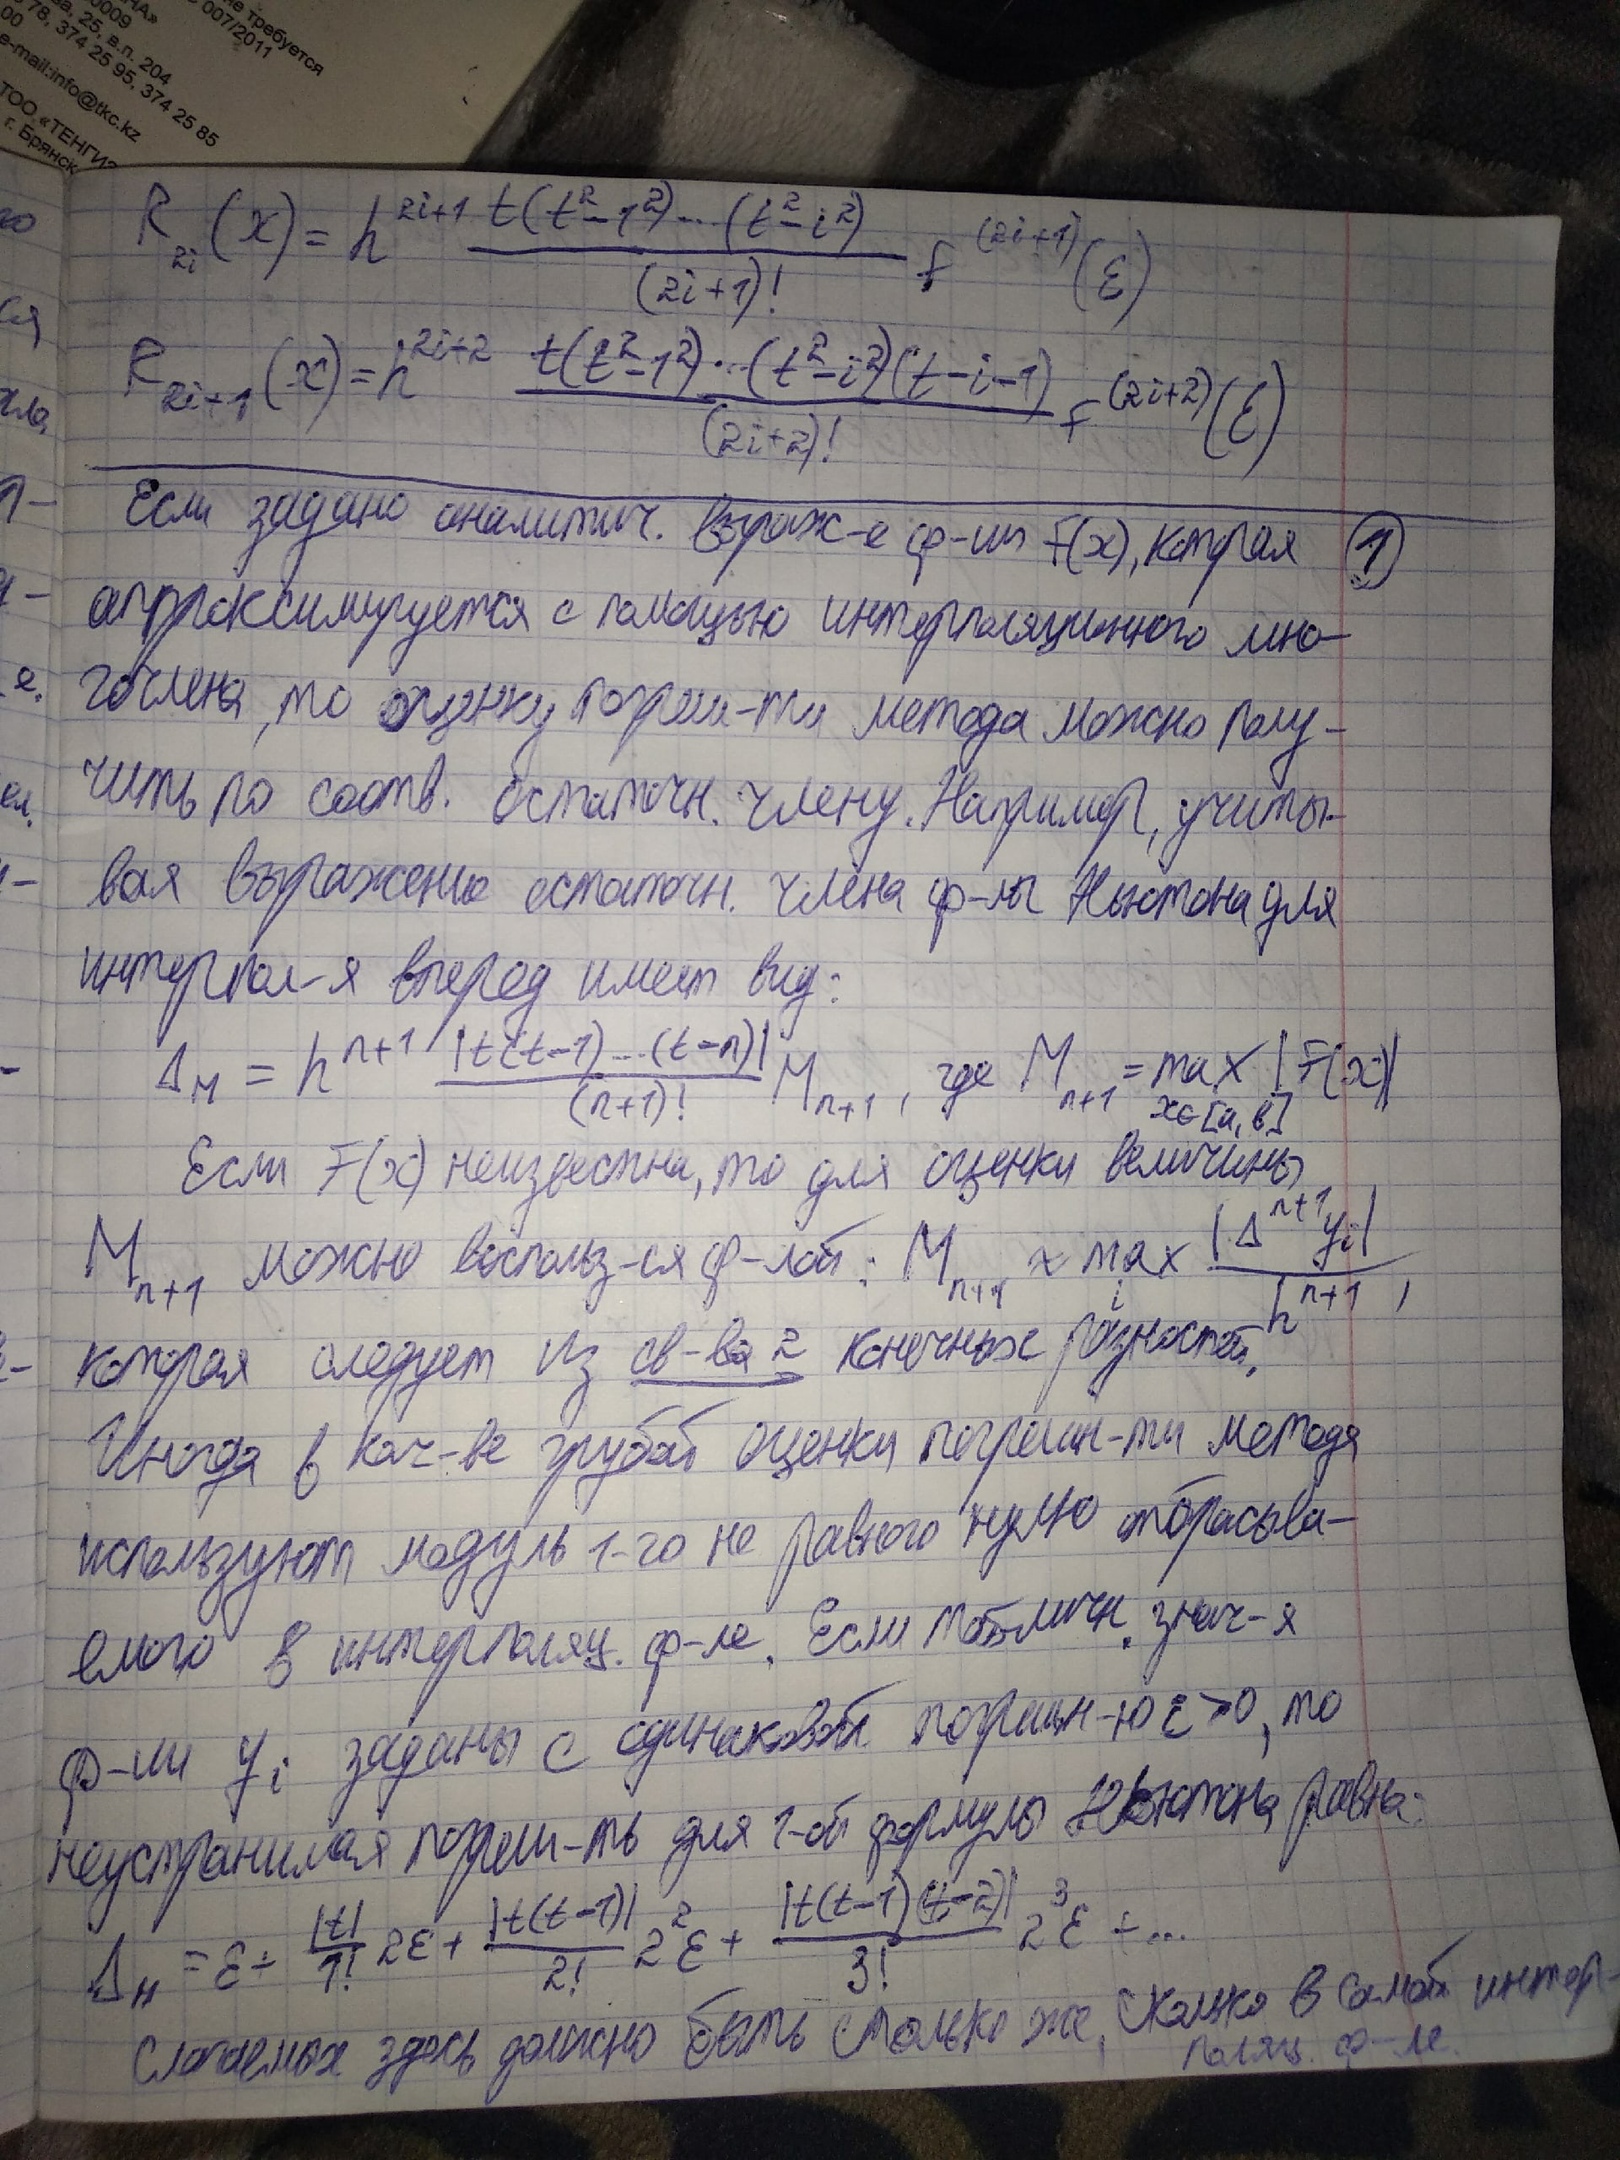 НА»
0009
ва, 25, в.п. 204
78, 374 25 95, 374 25 85
e-mail:info@tkc.kz
ТОО «ТЕНГИЗ
г. Брянск
не требуется
007/2011
R₂ᵢ(x) = h²ⁱ⁺¹ t(t²-1²)...(t²-i²) / (2i+1)! f⁽²ⁱ⁺¹⁾(ε)
R₂ᵢ₊₁(x) = h²ⁱ⁺² t(t²-1²)...(t²-i²)(t-i-1) / (2i+2)! f⁽²ⁱ⁺²⁾(ε)
Если задано аналитич. выраж-е ф-ии F(x), которая ①
аппроксимируется с помощью интерполяционного мно-
гочлена, то оценку погреш-ти метода можно полу-
чить по соотв. остаточн. члену. Например, учиты-
вая выражение остаточн. члена ф-лы Ньютона для
интерпол-я вперед имеет вид:
Δ_M = hⁿ⁺¹ |t(t-1)...(t-n)| / (n+1)! Mₙ₊₁, где Mₙ₊₁ = max |F(x)|
x∈[a,b]
Если F(x) неизвестна, то для оценки величины
Mₙ₊₁ можно воспольз-ся ф-лой: Mₙ₊₁ ≈ max_i |Δⁿ⁺¹yᵢ| / hⁿ⁺¹,
которая следует из св-ва 2 конечных разностей.
Иногда в кач-ве грубой оценки погрешн-ти метода
используют модуль 1-го не равного нулю отбрасыва-
емого в интерполяц. ф-ле. Если табличн. знач-я
ф-ии yᵢ заданы с одинаковой погрешн-ю ε>0, то
неустранимая погреш-ть для 1-ой формулы Ньютона равна:
Δ_H = ε + |t|/1! 2ε + |t(t-1)|/2! 2²ε + |t(t-1)(t-2)|/3! 2³ε + ...
Слагаемых здесь должно быть столько же, сколько в самой интер-
поляц. ф-ле.